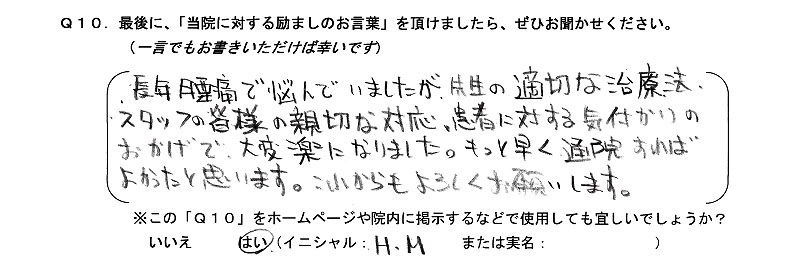 Q10．最後に、「当院に対する励ましのお言葉」を頂けましたら、ぜひお聞かせください。
（一言でもお書きいただけば幸いです）
長年腰痛で悩んでいましたが、先生の適切な治療法、
スタッフの皆様の親切な対応、患者に対する気付かりの
おかげで、大変楽になりました。もっと早く通院すれば
よかったと思います。これからもよろしくお願いします。
※この「Q10」をホームページや院内に掲示するなどで使用しても宜しいでしょうか？
いいえ　はい（イニシャル：H.M　または実名：　）